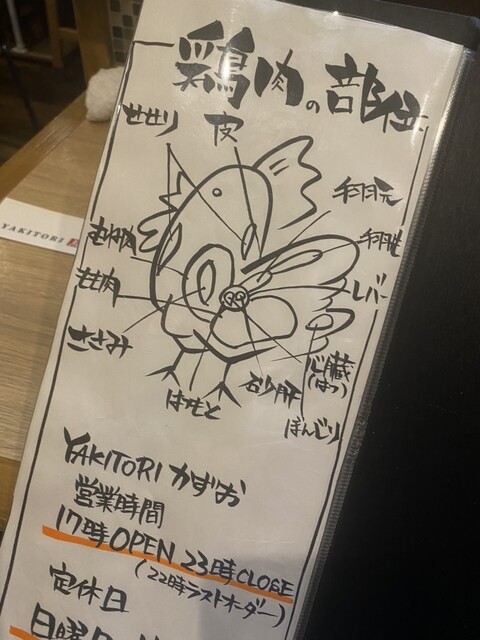 鶏肉の部位
せせり
皮
手羽元
手羽先
むね肉
もも肉
レバー
ささみ
心臓
(はつ)
砂肝
はつもと
ぼんじり
YAKITORI
YAKITORI かずお
営業時間
17時OPEN 23時CLOSE
(22時ラストオーダー)
定休日